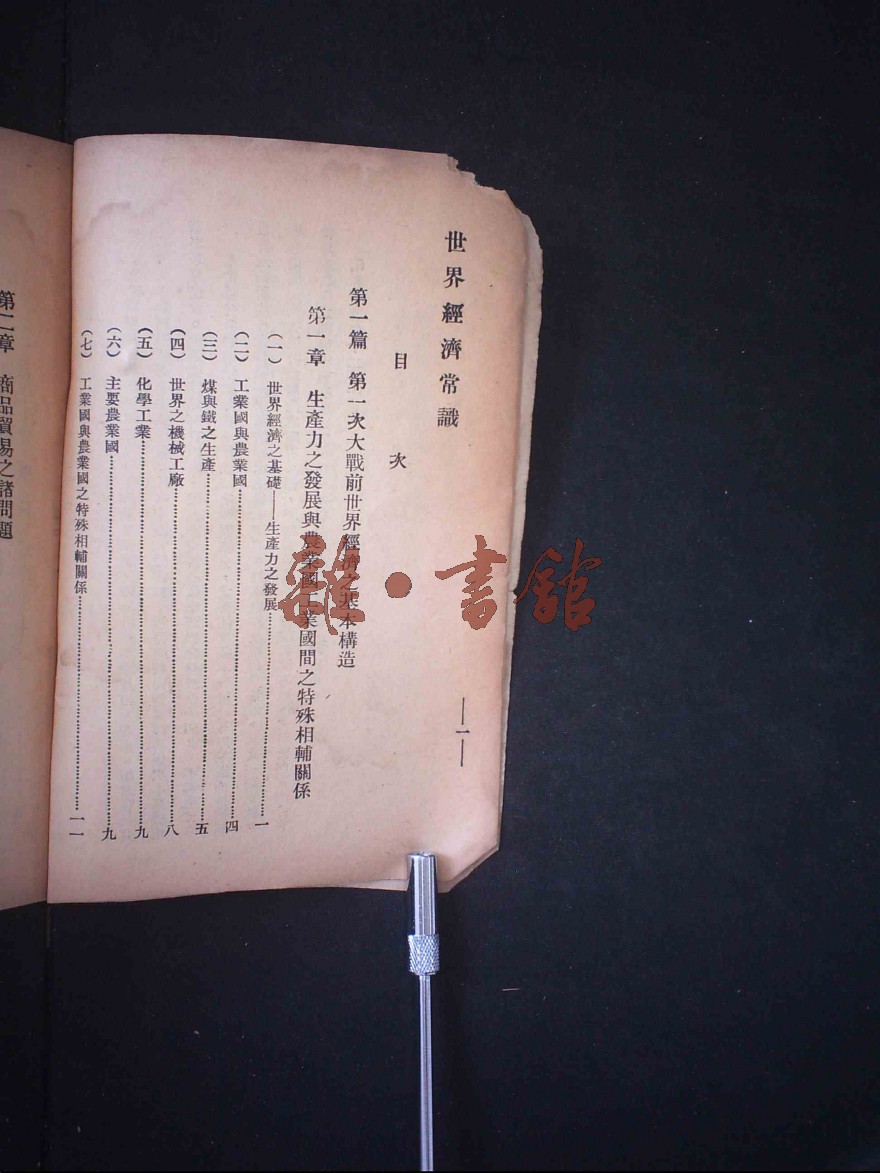 世界經濟常識
目次
第一篇　第一次大戰前世界經濟之基本構造
第一章　生產力之發展與農業國工業國間之特殊相輔關係
（一）　世界經濟之基礎——生產力之發展……………一
（二）　工業國與農業國……………四
（三）　煤與鐵之生產……………五
（四）　世界之機械工廠……………八
（五）　化學工業……………九
（六）　主要農業國……………九
（七）　工業國與農業國之特殊相輔關係……………一一
—一—
第二章　商品貿易之諸問題
雜·書館